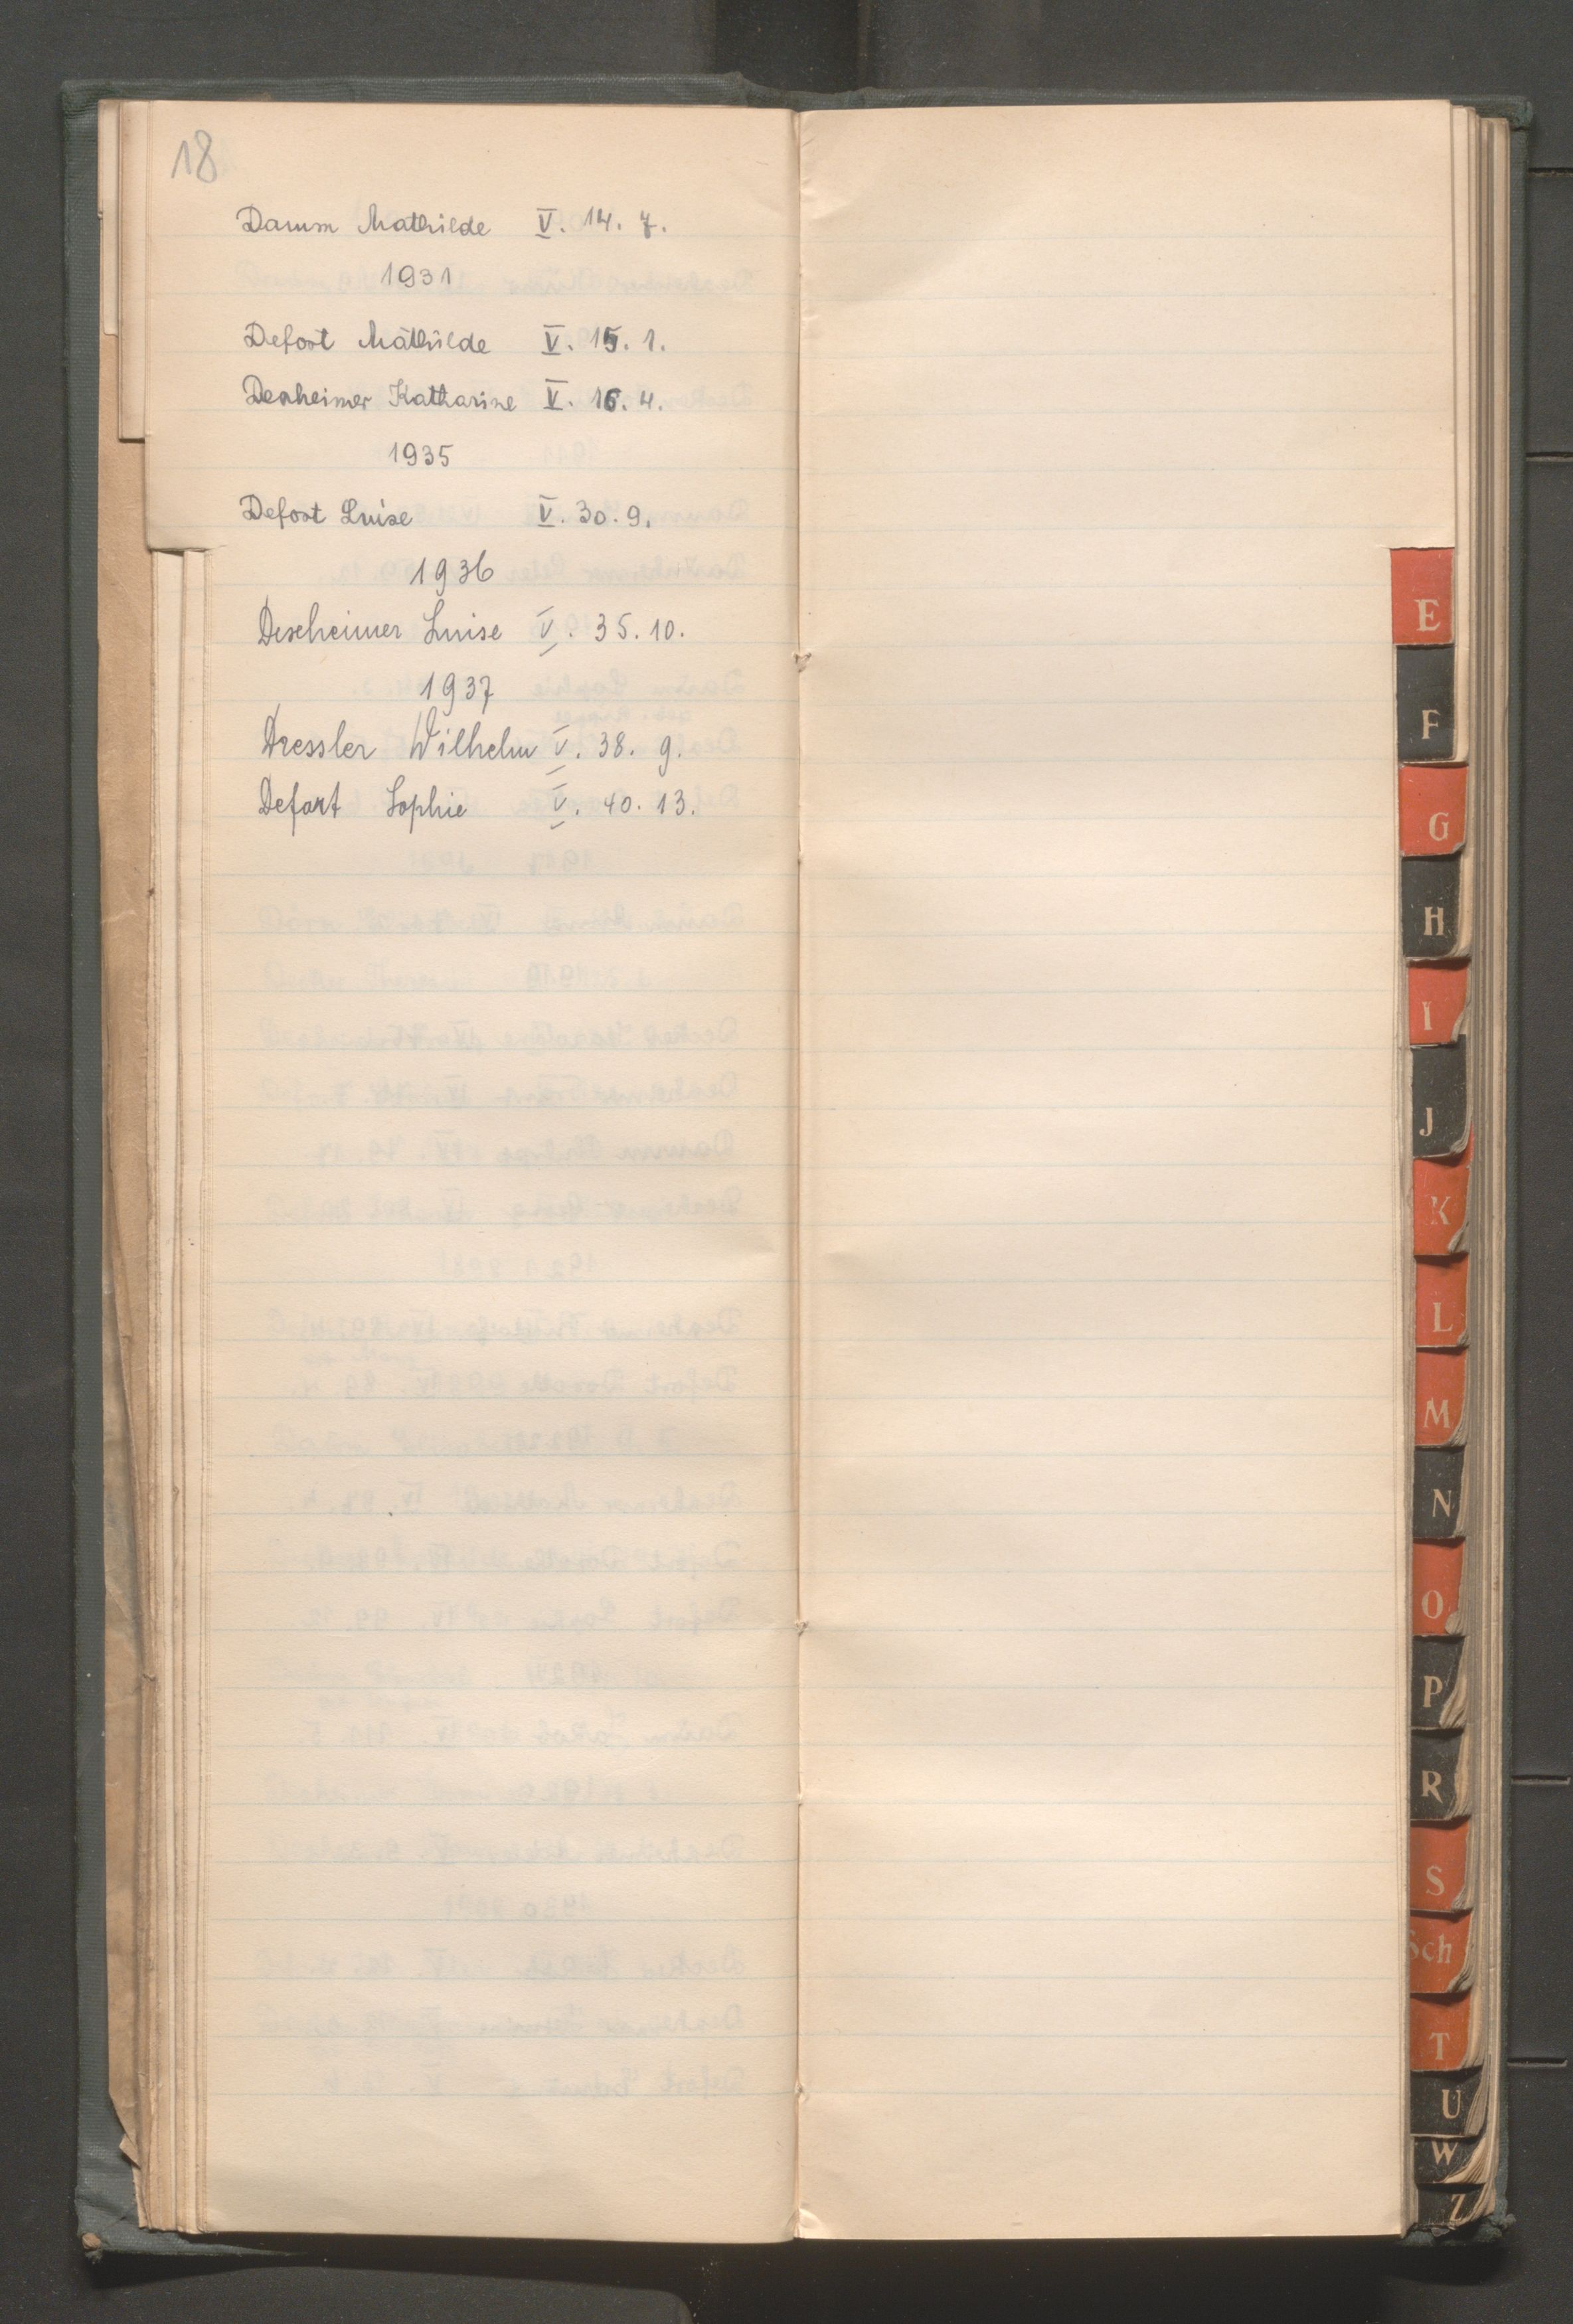 18
Damm Mathilde V. 14. 7.
1931
Defort Mathilde V. 15. 1.
Dexheimer Katharine V. 16. 4.
1935
Defort Luise V. 30. 9.
1936
Dexheimer Luise V. 35. 10.
1937
Dressler Wilhelm V. 38. 9.
Defort Sophie V. 40. 13.
E
F
G
H
I
J
K
L
M
N
O
P
R
S
Sch
T
U
W
Z